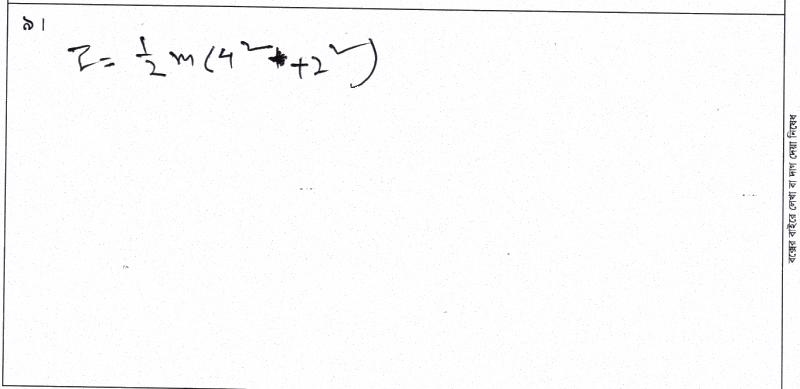 ৯।
I = 1/2 m (4² + 2²)
বক্সের বাইরে লেখা বা দাগ দেয়া নিষেধ